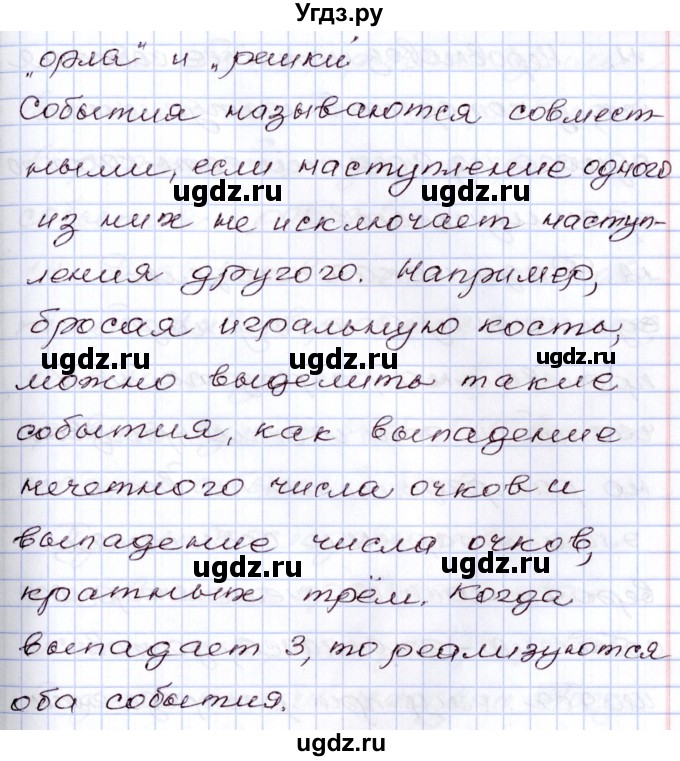 Угдз.ру
„орла" и „решки"
События называются совмест-
ными, если наступление одного
ugdz.ru ugdz.ru
из них не исключает наступ-
ления другого. Например,
бросая игральную кость,
ugdz.ru ugdz.ru ugdz.ru
можно выделить такие
события, как выпадение
нечетного числа очков и
выпадение числа очков,
ugdz.ru ugdz.ru
кратных трём. Когда
выпадает 3, то реализуются
оба события.
ugdz.ru